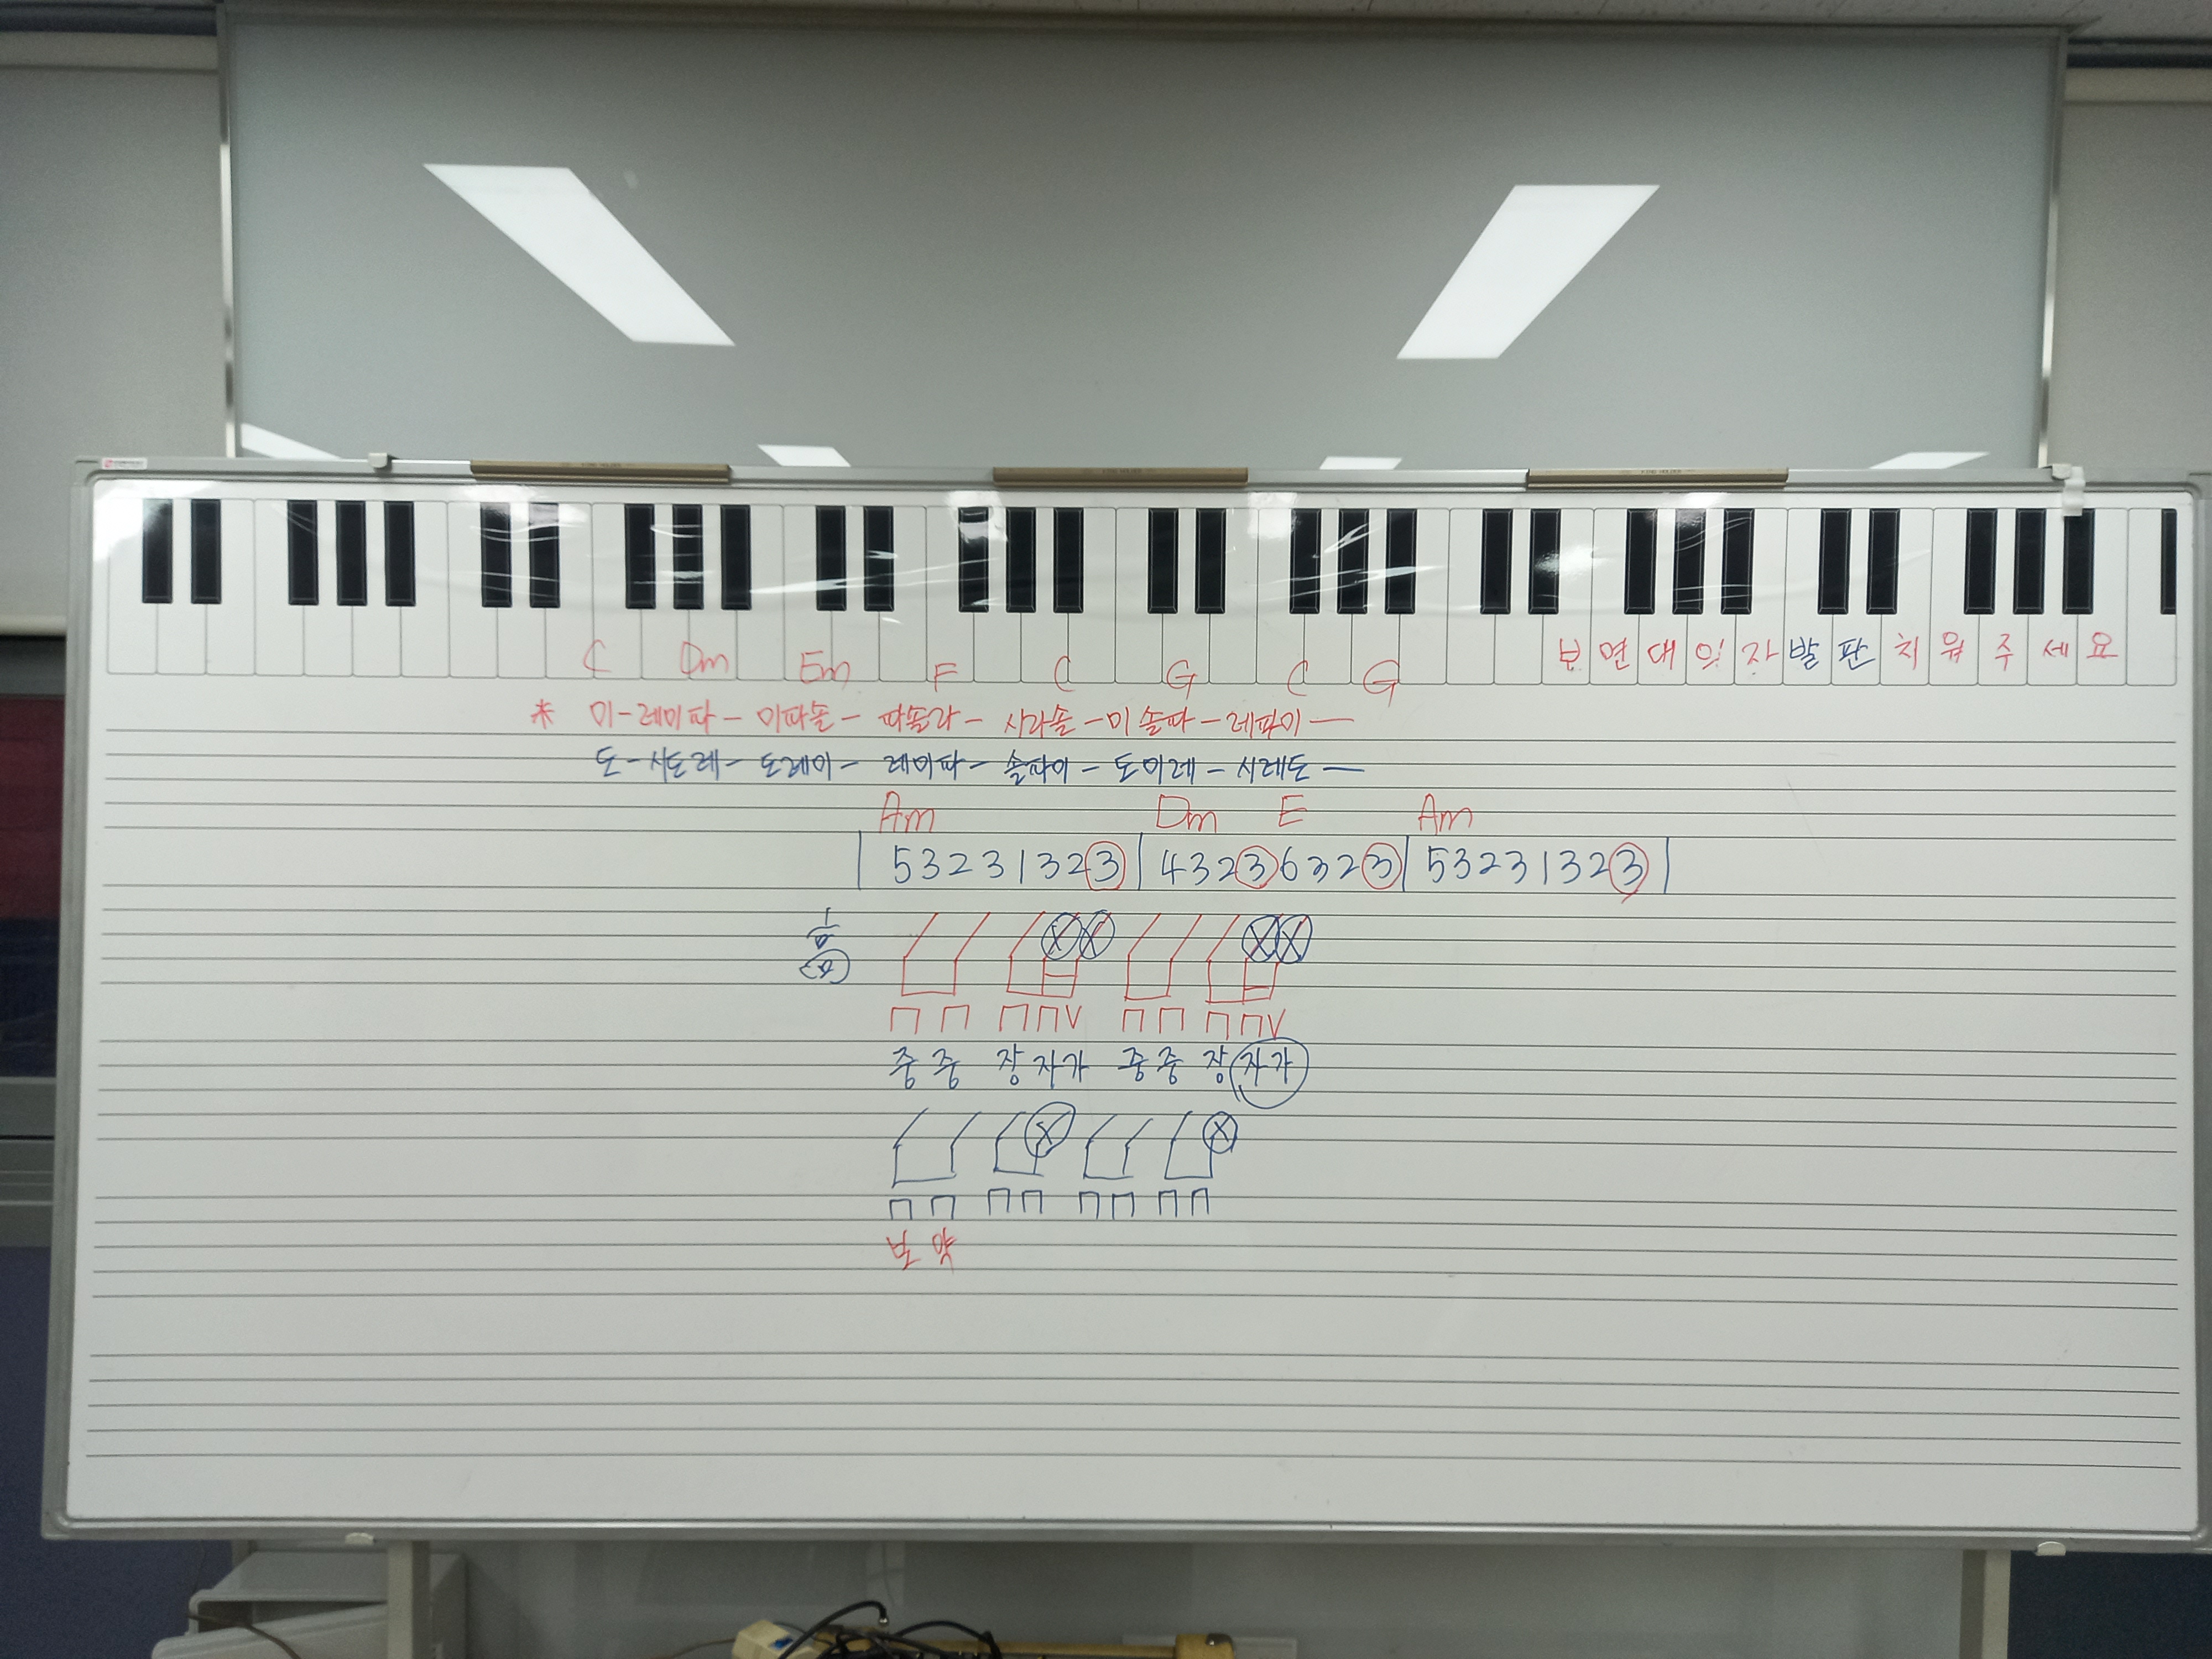 보면대의자발판치워주세요
C Dm Em F C G C G
* 미-레미파- 미파솔- 파솔라- 시라솔-미솔파-레파미—
도-시도레-도레미- 레미파- 솔파미-도미레-시레도—
Am Dm E Am
53231323 43236323 53231323
중중 장자가 중중 장자가
보약